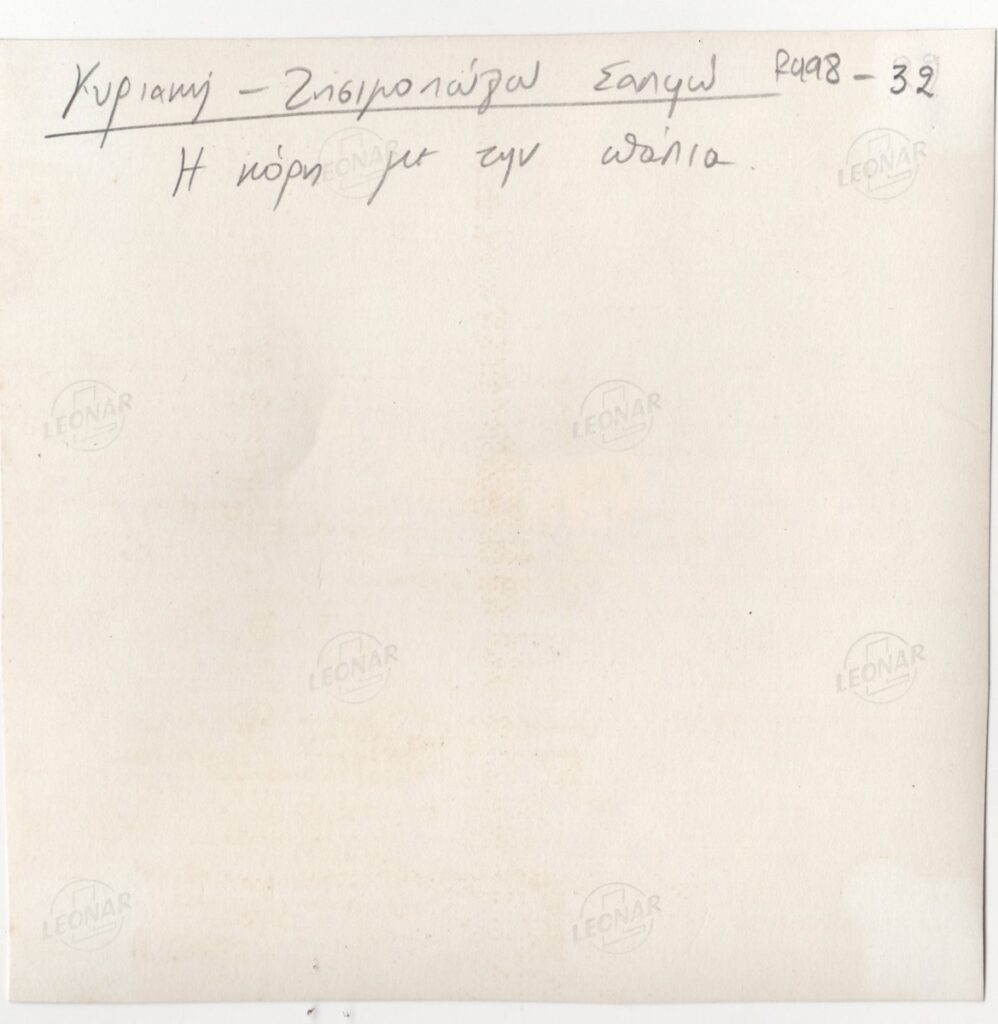 Κυριακή - Ζησιμοπούλου Σαπφώ R498 - 32
Η κόρη με την
LEONAR
LEONAR
LEONAR
LEONAR
LEONAR
LEONAR
LEONAR
LEONAR